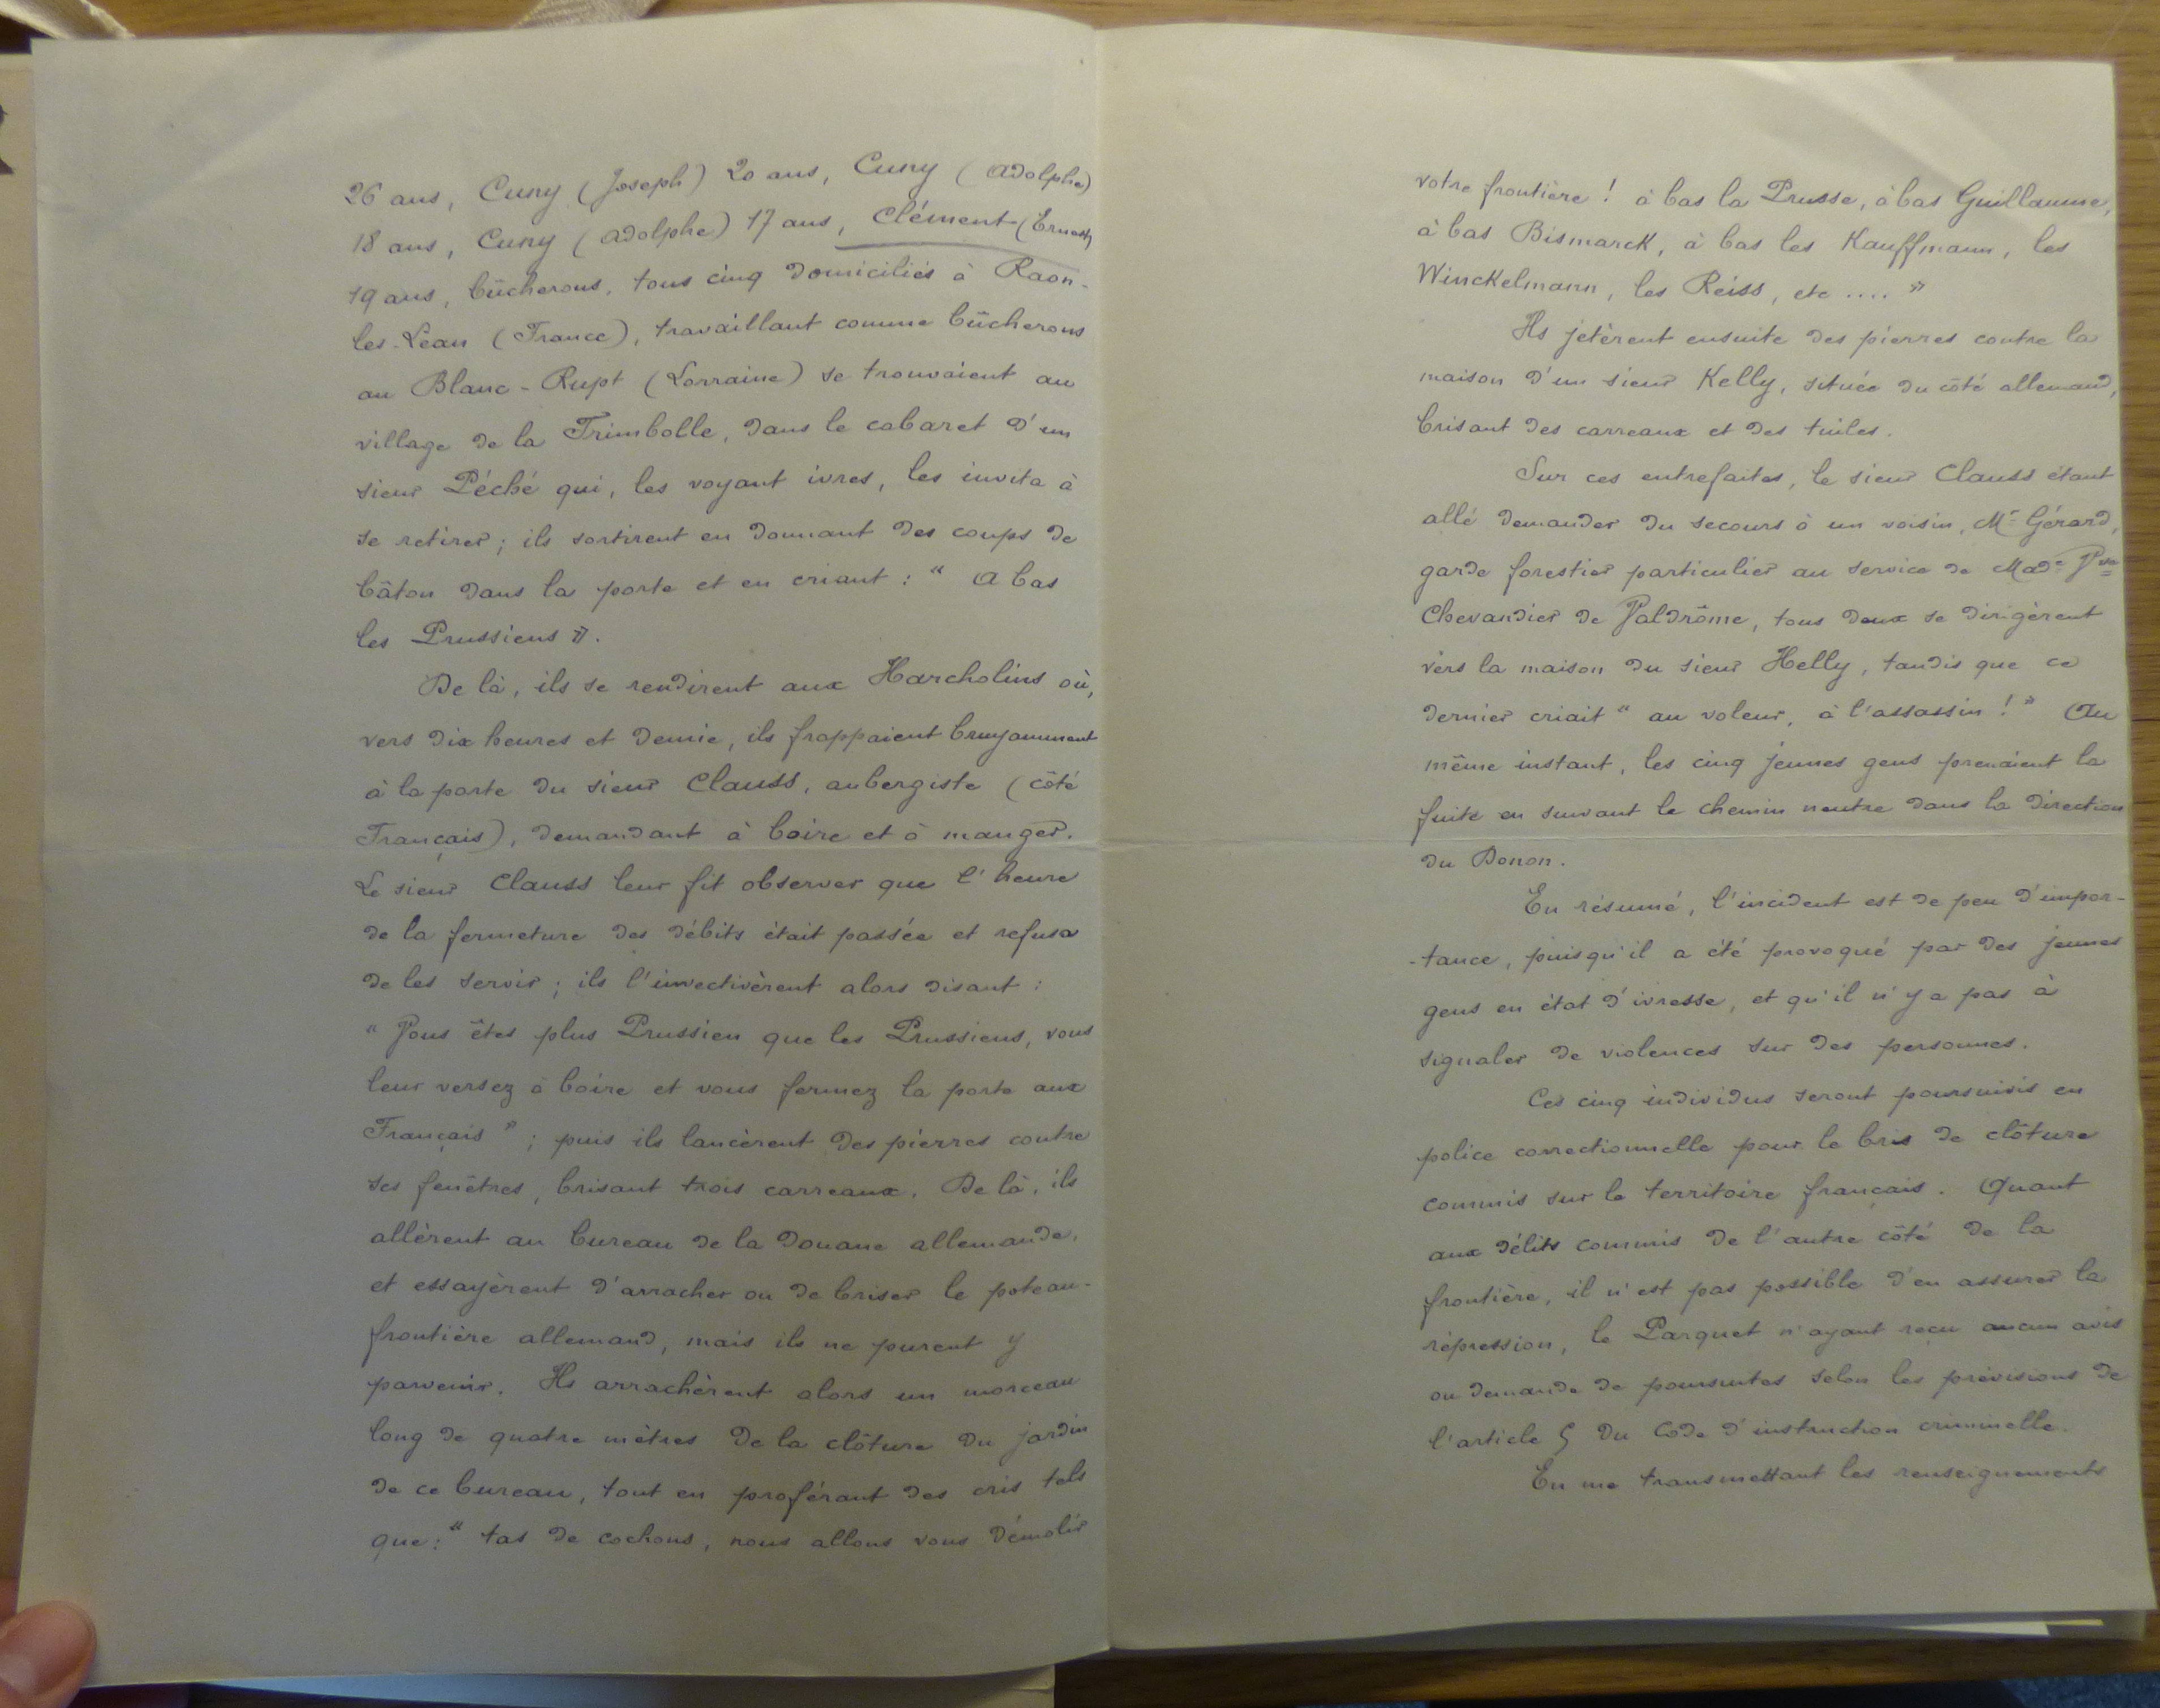 26 ans, Cuny (Joseph) 20 ans, Cuny (Adolphe)
18 ans, Cuny (Adolphe) 17 ans, Clément (Ernest)
19 ans, bûcherons, tous cinq domiciliés à Raon-
les-Leau (France), travaillant comme bûcherons
au Blanc-Rupt (Lorraine) se trouvaient au
village de la Trimbolle, dans le cabaret d'un
sieur Péché qui, les voyant ivres, les invita à
se retirer; ils sortirent en donnant des coups de
bâton dans la porte et en criant : " A bas
les Prussiens ".
De là, ils se rendirent aux Harcholins où,
vers dix heures et demie, ils frappaient bruyamment
à la porte du sieur Clauss, aubergiste (côté
Français), demandant à boire et à manger.
Le sieur Clauss leur fit observer que l'heure
de la fermeture des débits était passée et refusa
de les servir; ils l'invectivèrent alors disant :
" Vous êtes plus Prussien que les Prussiens, vous
leur versez à boire et vous fermez la porte aux
Français "; puis ils lancèrent des pierres contre
ses fenêtres, brisant trois carreaux. De là, ils
allèrent au bureau de la Douane allemande,
et essayèrent d'arracher ou de briser le poteau-
frontière allemand, mais ils ne purent y
parvenir. Ils arrachèrent alors un morceau
long de quatre mètres de la clôture du jardin
de ce bureau, tout en proférant des cris tels
que: " tas de cochons, nous allons vous démolir
votre frontière ! à bas la Prusse, à bas Guillaume,
à bas Bismarck, à bas les Kauffmann, les
Winckelmann, les Reiss, etc .... "
Ils jetèrent ensuite des pierres contre la
maison d'un sieur Kelly, située du côté allemand,
brisant des carreaux et des tuiles.
Sur ces entrefaites, le sieur Clauss étant
allé demander du secours à un voisin, Mr Gérard,
garde forestier particulier au service de Made Vve
Chevandier de Valdrôme, tous deux se dirigèrent
vers la maison du sieur Helly, tandis que ce
dernier criait " au voleur, à l'assassin ! " Au
même instant, les cinq jeunes gens prenaient la
fuite en suivant le chemin neutre dans la direction
du Donon.
En résumé, l'incident est de peu d'impor-
-tance, puisqu'il a été provoqué par des jeunes
gens en état d'ivresse, et qu'il n'y a pas à
signaler de violences sur des personnes.
Ces cinq individus seront poursuivis en
police correctionnelle pour le bris de clôture
commis sur le territoire français. Quant
aux délits commis de l'autre côté de la
frontière, il n'est pas possible d'en assurer la
répression, le Parquet n'ayant reçu aucun avis
ou demande de poursuites selon les prévisions de
l'article 5 du Code d'instruction criminelle.
En me transmettant les renseignements